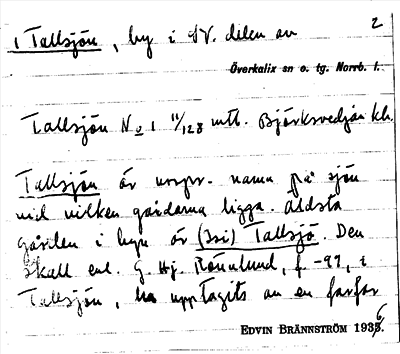 2
1 Tallsjön, by i NV. delen av
Överkalix sn o. tg. Norrb. l.
Tallsjön No 1 11/128 mtl. Björksvedjan kb.
Tallsjön är urspr. namn på sjön
vid vilken gårdarna ligga. Äldsta
gården i byn är (Isi) Tallsjö. Den
skall enl. G. Hj. Rönnlund, f. -97, i
Tallsjön, ha upptagits av en farfar
EDVIN BRÄNNSTRÖM 1936.